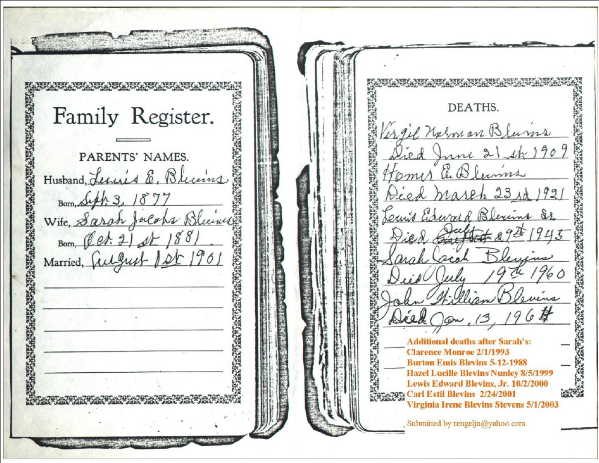 Family Register.
PARENTS' NAMES.
Husband, Lewis E. Blevins
Born, Sept 3, 1877
Wife, Sarah Jacobs Blevins
Born, Oct. 21 st 1881.
Married, August 1st 1901
DEATHS.
Virgil Norman Blevins
Died June 21 st 1909
Homer E. Blevins
Died March 23rd 1921
Lewis Edward Blevins Sr
Died 29th 1945
Sarah Jacob Blevins
Died July 19th 1960
John William Blevins
Died Jan. 13, 196
Additional deaths after Sarah's:
Clarence Monroe 2/1/1993
Burton Ennis Blevins 5-12-1988
Hazel Lucille Blevins Nunley 8/5/1999
Lewis Edward Blevins, Jr. 10/2/2000
Carl Estil Blevins 2/24/2001
Virginia Irene Blevins Stevens 5/1/2003
Submitted by rengeljn@yahoo.com